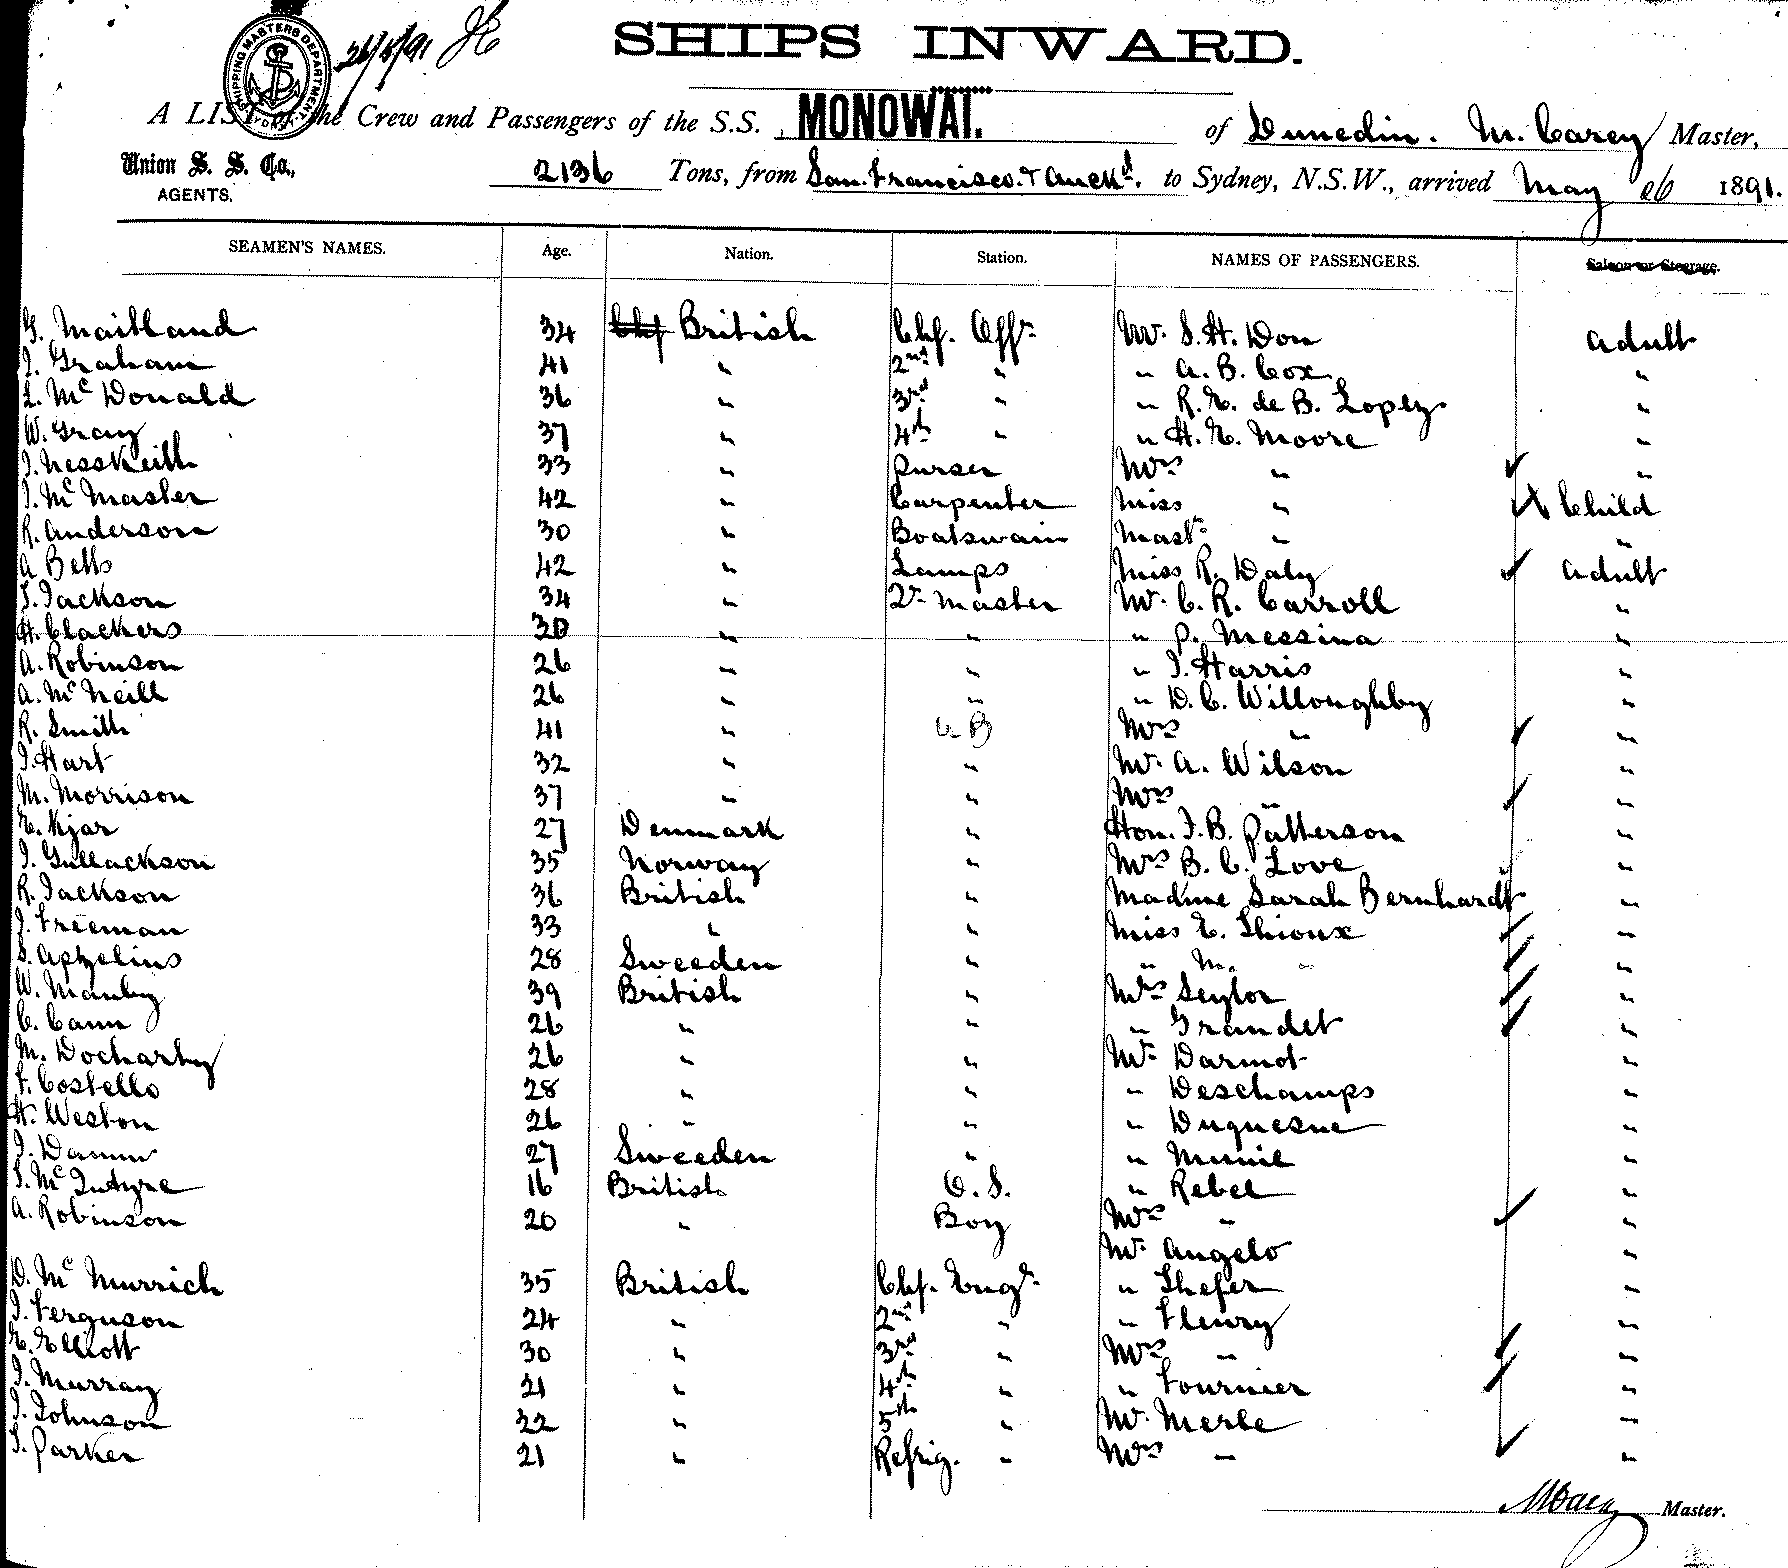 SHIPPING MASTERS DEPARTMENT
26/5/91
SHIPS INWARD.
A LIST of the Crew and Passengers of the S.S. MONOWAI. of Dunedin. M. Carey Master,
Union S. S. Co., AGENTS. 2136 Tons, from San. Francisco. & Auckd. to Sydney, N.S.W., arrived May 26 1891.
SEAMEN'S NAMES. Age. Nation. Station. NAMES OF PASSENGERS. Saloon or Steerage.
G. Maitland 34 Chf British Chf. Offr. Mr. S. H. Don Adult
J. Graham 41 " 2nd " " A. B. Cox "
L. Mc Donald 36 " 3rd " " R. E. de B. Lopez "
W. Gray 37 " 4th " " H. E. Moore "
J. Ness Keith 33 " Purser Mrs " "
J. Mc Master 42 " Carpenter Miss " Child
R. Anderson 30 " Boatswain Mastr " "
A Betts 42 " Lamps Miss R. Daly Adult
S. Jackson 34 " Qr Master Mr. C. R. Carroll "
H. Clackers 30 " " " P. Messina "
A. Robinson 26 " " " J. Harris "
A. Mc Neill 26 " " " D. C. Willoughby "
R. Smith 41 " A B Mrs " "
J. Hart 32 " " Mr. A. Wilson "
M. Morrison 37 " " Mrs " "
E. Kjar 27 Denmark " Hon. J. B. Patterson "
J. Gullackson 35 Norway " Mrs B. C. Love "
R. Jackson 36 British " Madme Sarah Bernhardt "
J. Freeman 33 " " Miss E. Thioux "
S. Aphelius 28 Sweeden " " M. " "
W. Manby 39 British " Mrs Seylor "
C. Cann 26 " " " Grandet "
M. Docharty 26 " " Mr Darmot "
F. Costello 28 " " " Deschamps "
H. Weston 26 " " " Duquesne "
J. Damm 27 Sweeden " " Munie "
S. Mc Intyre 16 British O. S. " Rebel "
A. Robinson 20 " Boy Mrs " "
Mr. Angelo "
D. Mc Murrich 35 British Chf. Engr. " Thefer "
J. Ferguson 24 " 2nd " " Fleury "
E. Elliott 30 " 3rd " Mrs " "
J. Murray 21 " 4th " " Fournier "
J. Johnson 22 " 5th " Mr. Merle "
S. Parker 21 " Refrig. " Mrs " "
M Carey Master.